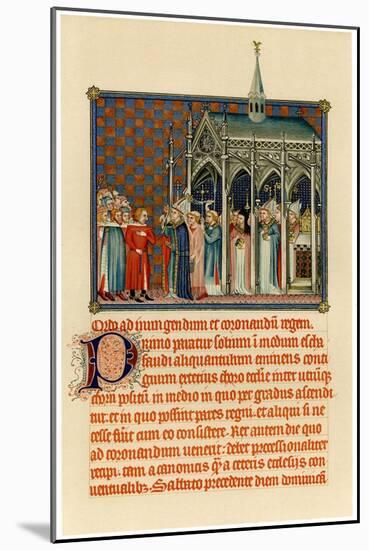 Ordo ad inungendum et coronandū regem.
Primo paratur solium ī modum escha
faudi aliquantulum eminens conti
guum exterius choro ecclie inter utrūque
chorū positū in medio in quo per gradus ascendi
tur. et in quo possint pares regni. et aliqui si ne
cesse fuit cum eo consistere. Rex autem die quo
ad coronandum uenerit. debet processionaliter
recipi. tam a canonicis q̄ a ceteris ecclesijs con
uentualibꝫ. Sabbato precedente diem dominicā